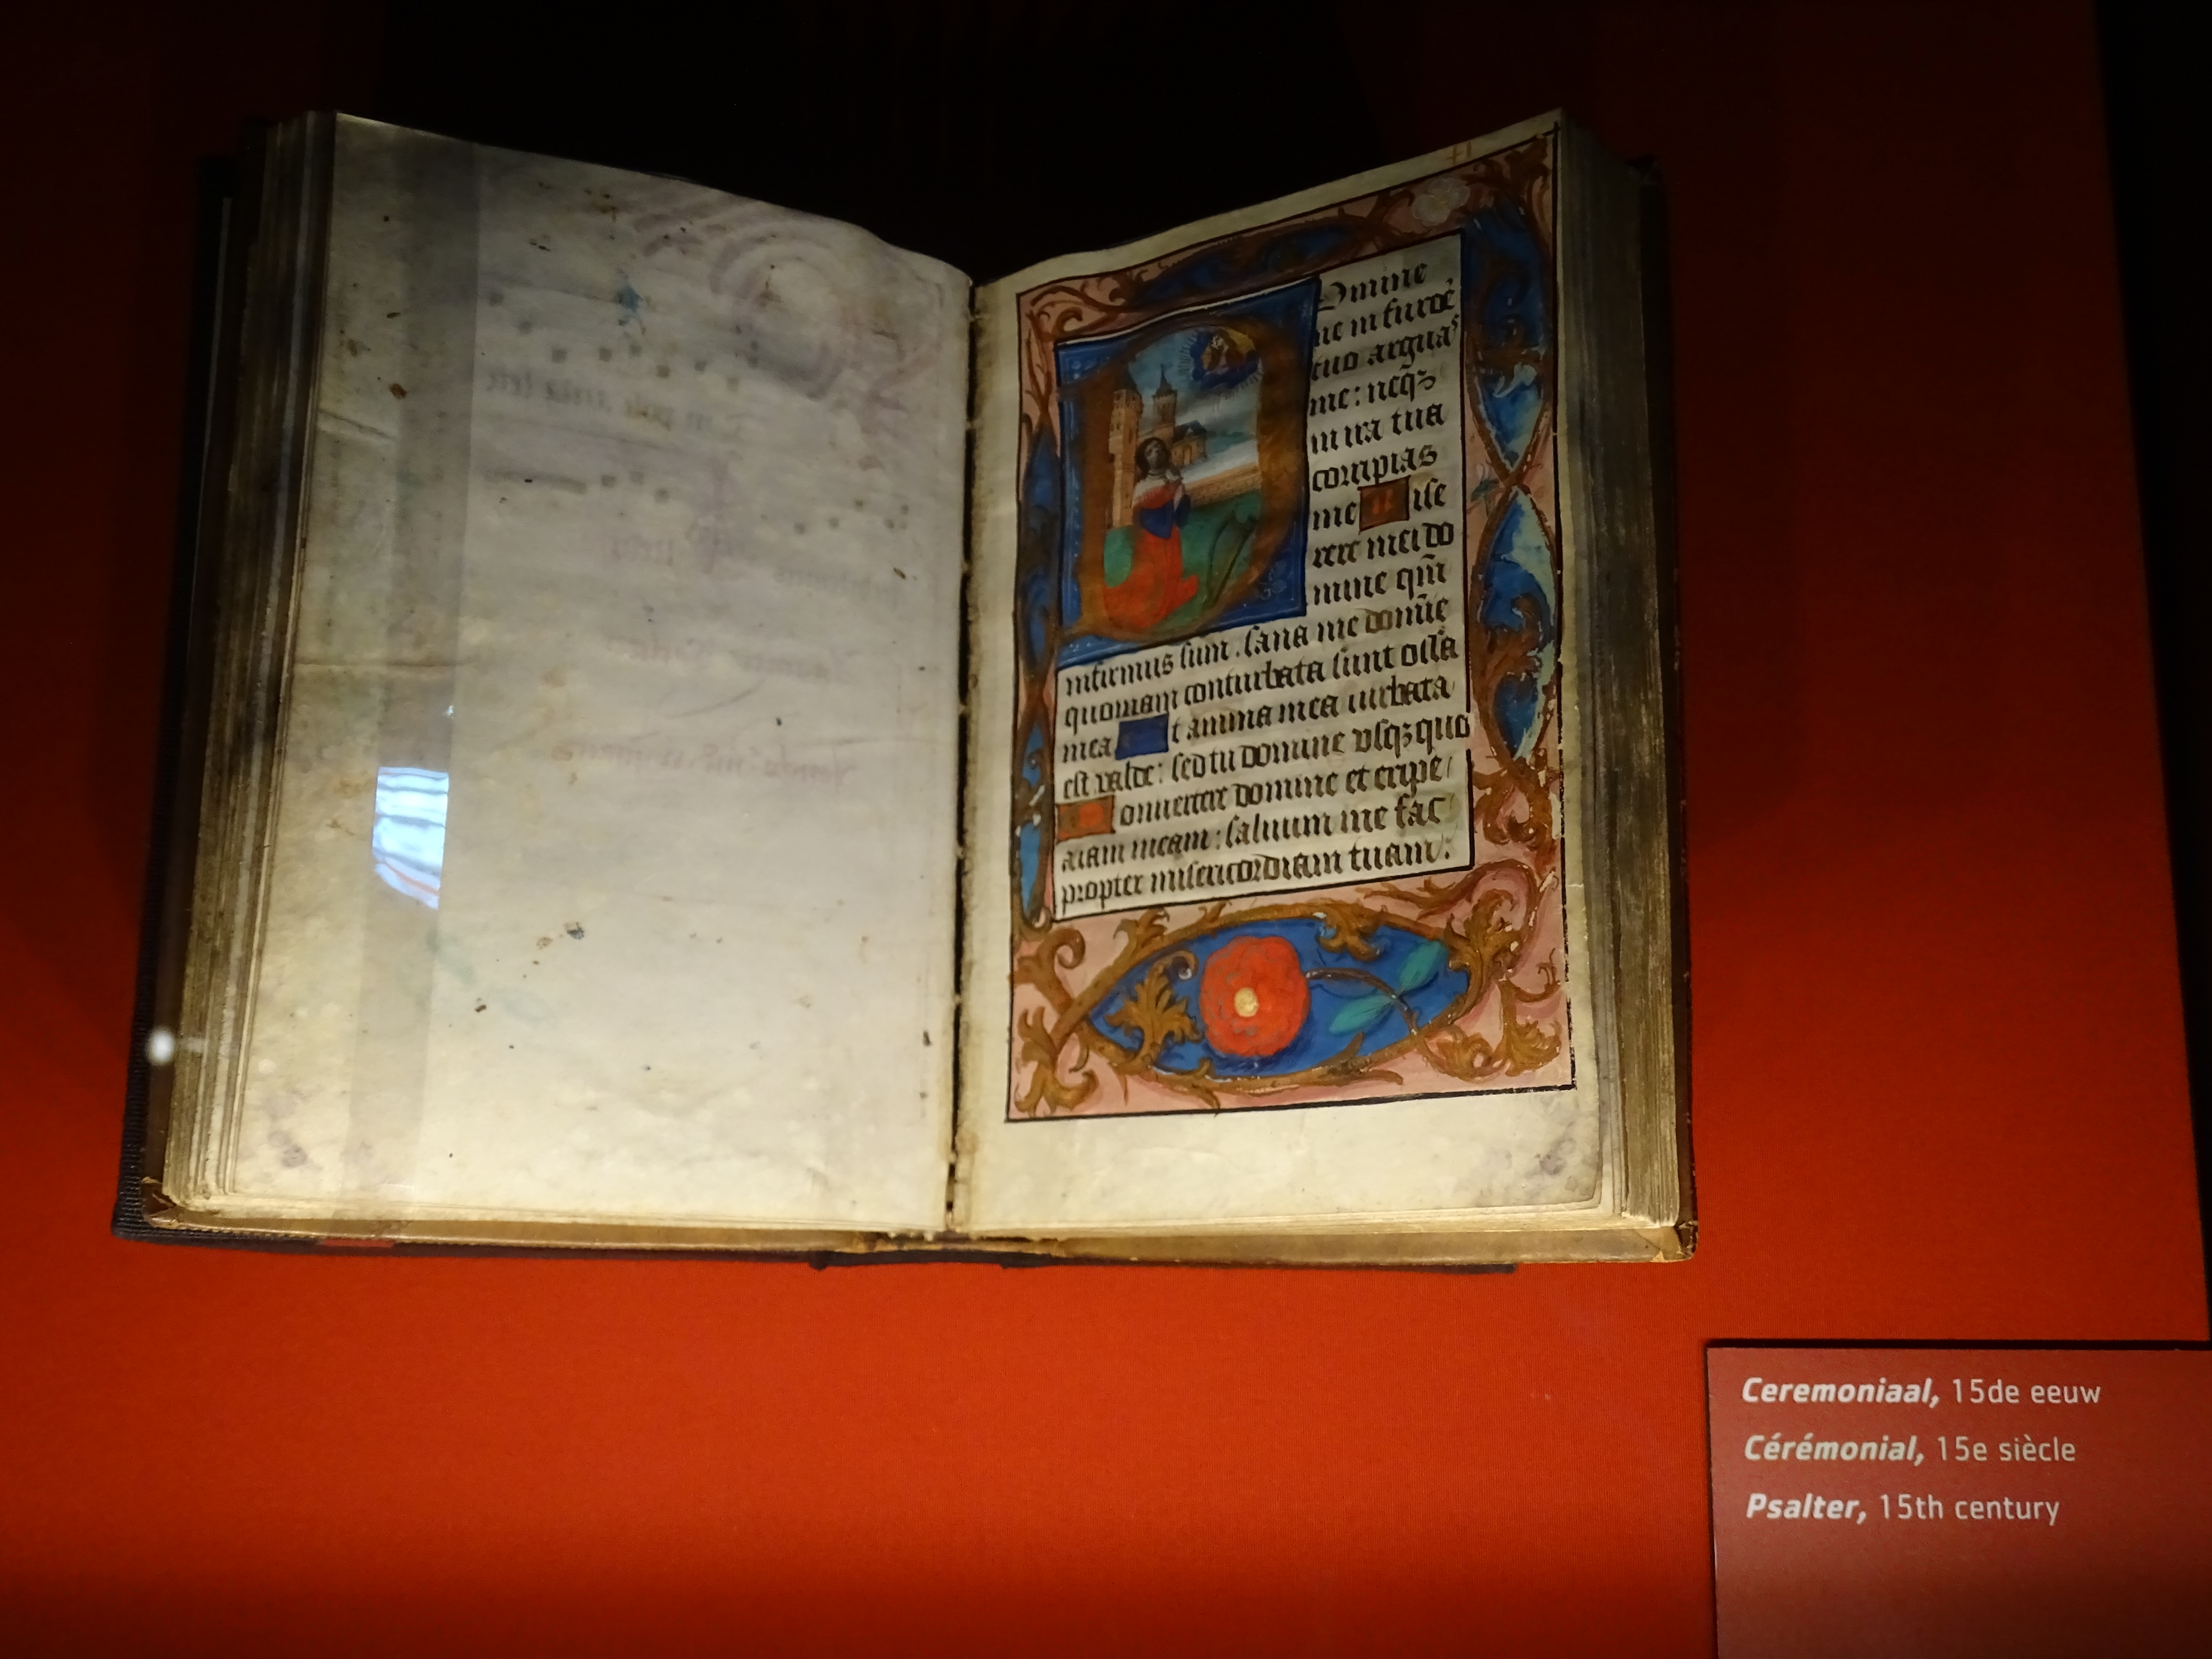 Domine
ne in furore
tuo arguas
me: neqꝫ
in ira tua
corripias
me Mise
rere mei do
mine qm̄
infirmus sum. sana me domie
quoniam conturbata sunt ossa
mea Et anima mea turbata
est valde: sed tu domine vsqꝫ quo
Conuertere domine et eripe
aiam meam: saluum me fac
propter misericordiam tuam.
Ceremoniaal, 15de eeuw
Cérémonial, 15e siècle
Psalter, 15th century